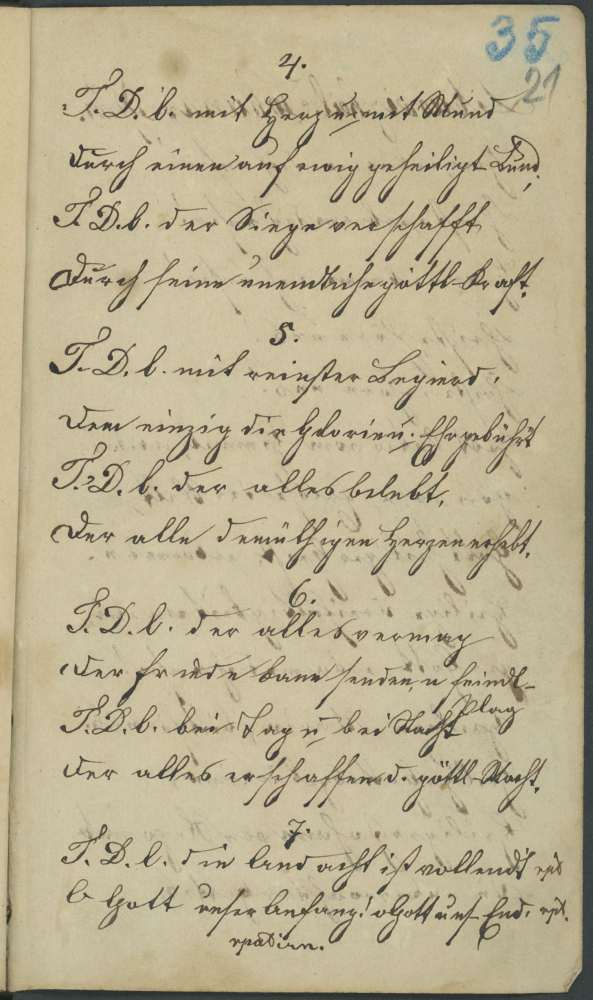 35
21
4.
T. D. b. mit Herz u. mit Mund
Durch einen auf ewig geheiligt Bund,
T. D. b. der Siege verschafft
Durch seine unendliche göttl. Kraft.
5.
T. D. b. mit reinster Begierd,
Dem einzig die Glorie u. Ehr gebührt
T. D. b. der alles belebt,
Der alle demüthigen Herzen erhebt.
6.
T. D. b. der alles vermag
Der Friede kann senden, u feindl-
Plag
T. D. b. bei Tag u. bei Nacht
Der alles erschaffen d. göttl. Macht.
7.
T. D. b. die Andacht ist vollendt rpt
O Gott unser Anfang! o Gott uns End. rpt.